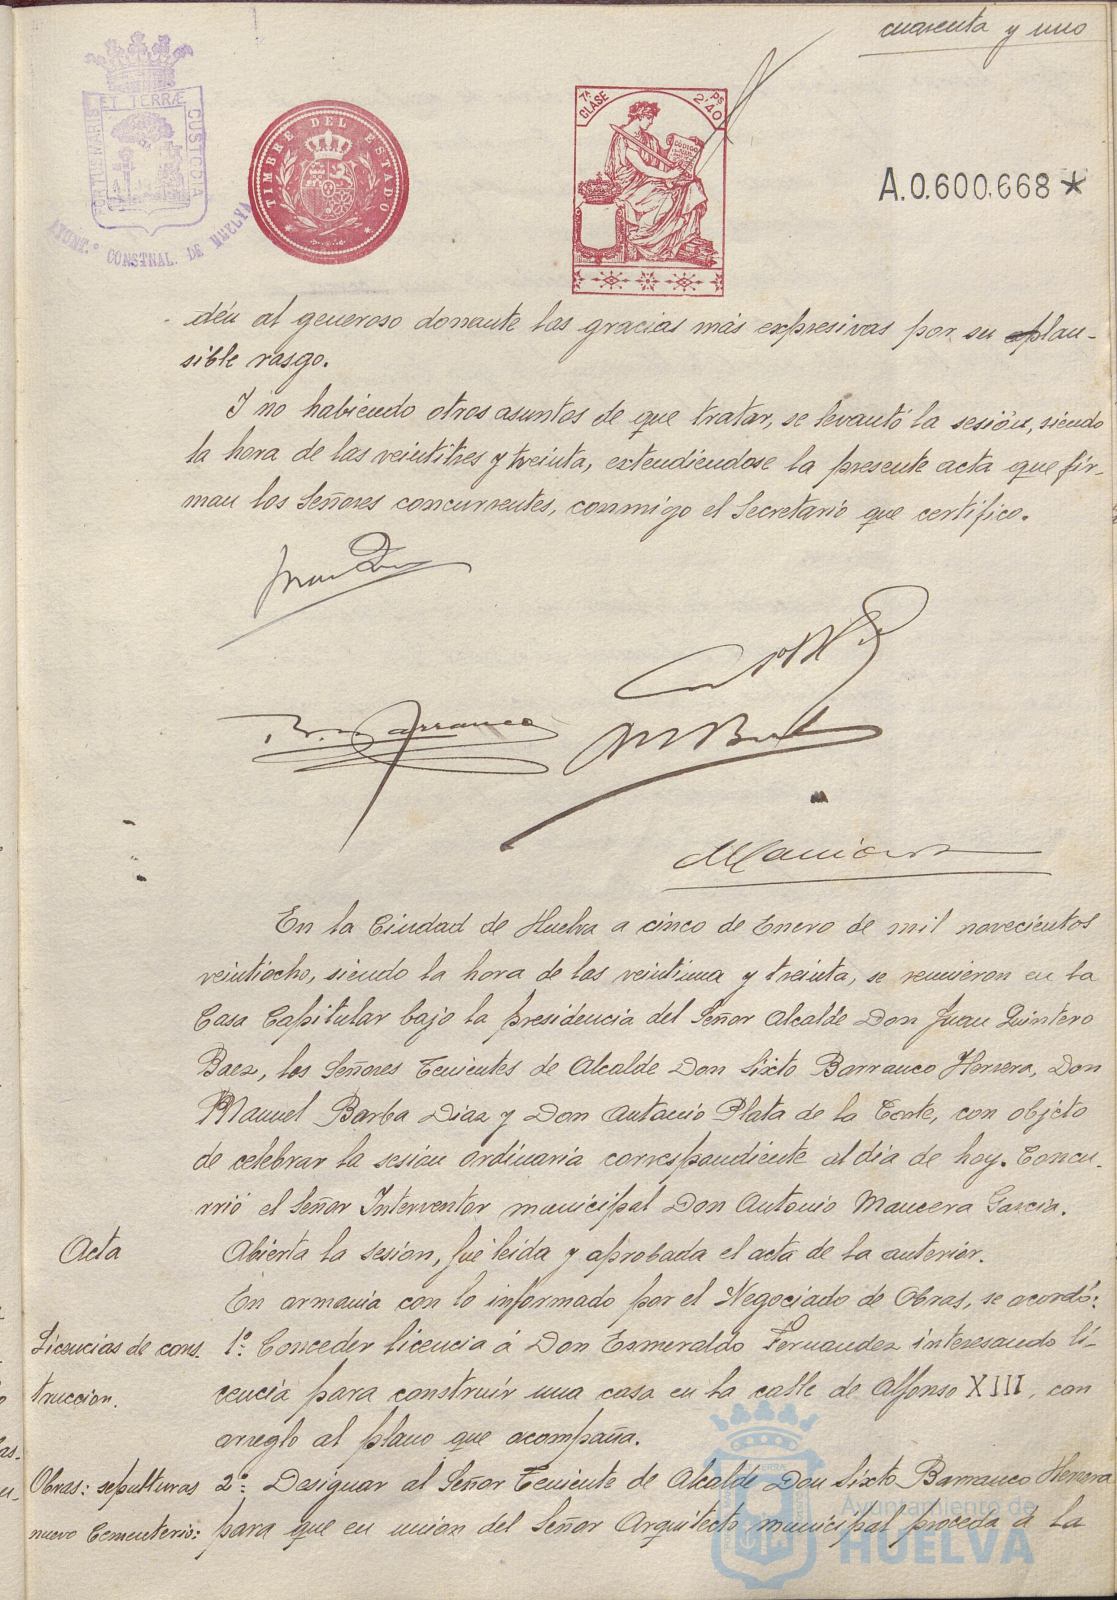 cuarenta y uno
PORTUS MARIS ET TERRÆ CUSTODIA
AYUNT.º CONSTNAL. DE HUELVA
TIMBRE DEL ESTADO
7ª CLASE
2'40 Ps
A.0.600.668*
dén al generoso donante las gracias más expresivas por su plau-
sible rasgo.
Y no habiendo otros asuntos de que tratar, se levantó la sesión, siendo
la hora de las veintitres y treinta, extendiendose la presente acta que fir-
man los Señores concurrentes, conmigo el Secretario que certifico.
Barranco
En la Ciudad de Huelva a cinco de Enero de mil novecientos
veintiocho, siendo la hora de las veintiuna y treinta, se reunieron en la
Casa Capitular bajo la presidencia del Señor Alcalde Don Juan Quintero
Baez, los Señores Tenientes de Alcalde Don Sixto Barranco Herrera, Don
Manuel Barba Diaz y Don Antonio Plata de la Corte, con objeto
de celebrar la sesion ordinaria correspondiente al dia de hoy. Concu-
rrió el Señor Interventor municipal Don Antonio Mancera Garcia.
Acta Abierta la sesion, fué leida y aprobada el acta de la anterior.
En armonia con lo informado por el Negociado de Obras, se acordó:
Licencias de cons- 1º: Conceder licencia á Don Esmeraldo Fernandez interesando li-
truccion. cencia para construir una casa en la calle de Alfonso XIII, con
arreglo al plano que acompaña.
Obras: sepulturas 2º: Designar al Señor Teniente de Alcalde Don Sixto Barranco Herrera
nuevo Cementerio: para que en union del Señor Arquitecto municipal proceda á la
Ayuntamiento de
HUELVA